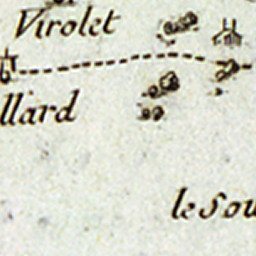 Virolet
llard
le Sou